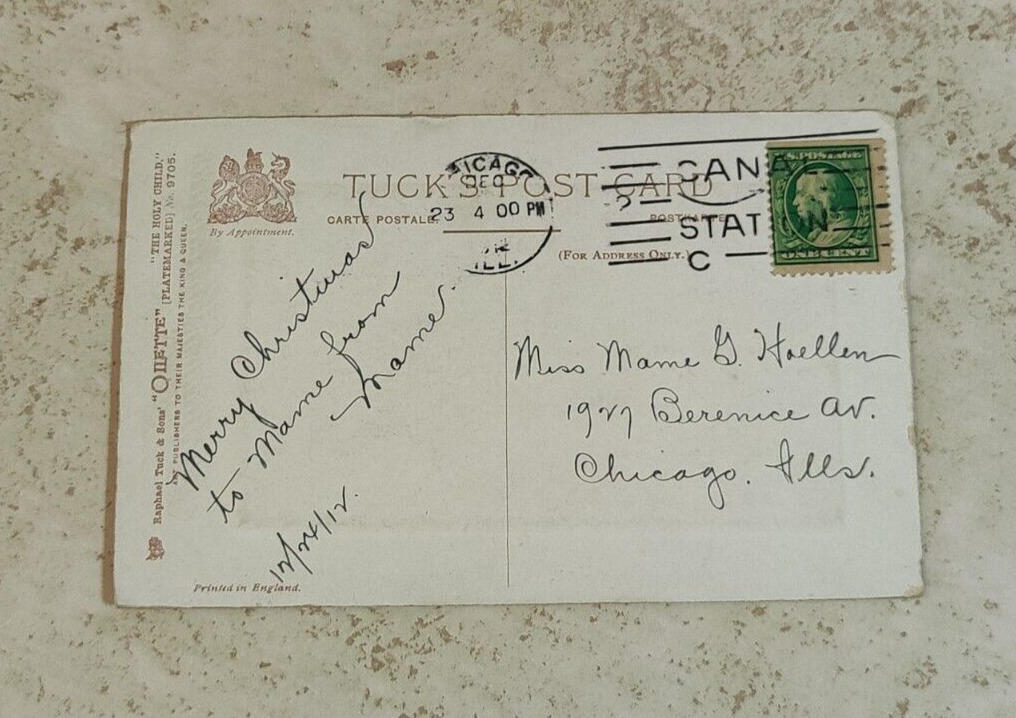 Raphael Tuck & Sons' "OILETTE" [PLATEMARKED] No. 9705.
"THE HOLY CHILD."
ART PUBLISHERS TO THEIR MAJESTIES THE KING & QUEEN.
By Appointment.
TUCK'S POST CARD
CARTE POSTALE.
POSTKARTE.
(FOR ADDRESS ONLY.)
CHICAGO
DEC
23 4 00 PM
ILL.
CANAL
STATION
C
U.S. POSTAGE
ONE CENT
Merry Christmas
to Mame from
Mame.
12/24/12.
Miss Mame G. Hoellen
1927 Berenice Av.
Chicago. Ills.
Printed in England.